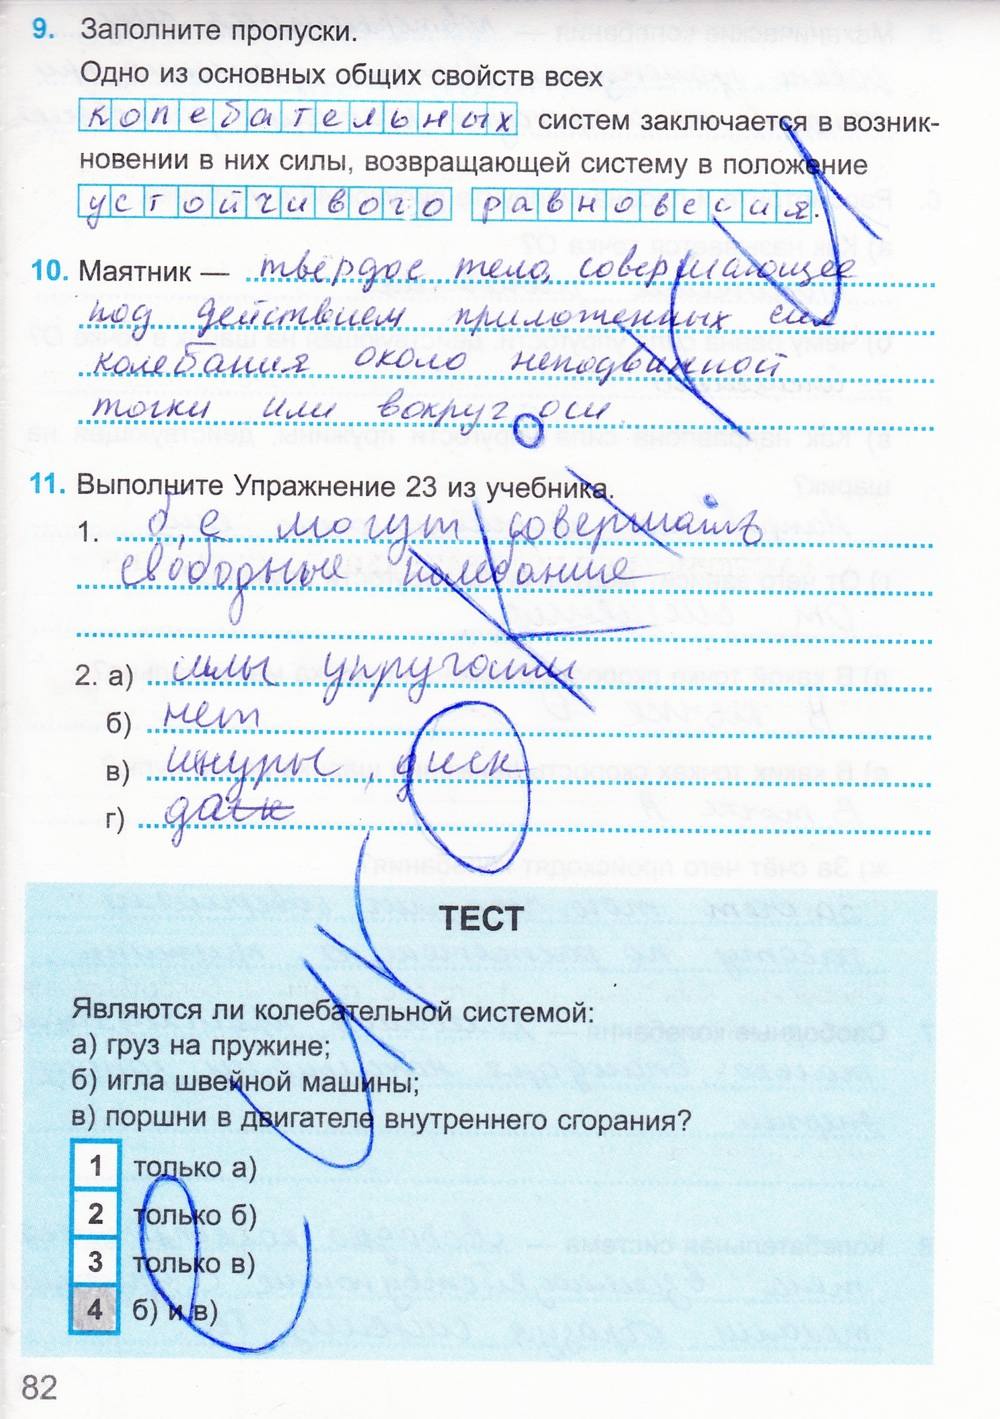 9. Заполните пропуски.
Одно из основных общих свойств всех
колебательных систем заключается в возник-
новении в них силы, возвращающей систему в положение
устойчивого равновесия.
10. Маятник — твёрдое тело, совершающее
под действием приложенных сил
колебания около неподвижной
точки или вокруг оси.
11. Выполните Упражнение 23 из учебника.
1. все могут совершать
свободные колебание
2. а) силы упругости
б) нет
в) шнуры, диск
г) да
ТЕСТ
Являются ли колебательной системой:
а) груз на пружине;
б) игла швейной машины;
в) поршни в двигателе внутреннего сгорания?
1 только а)
2 только б)
3 только в)
4 б) и в)
82